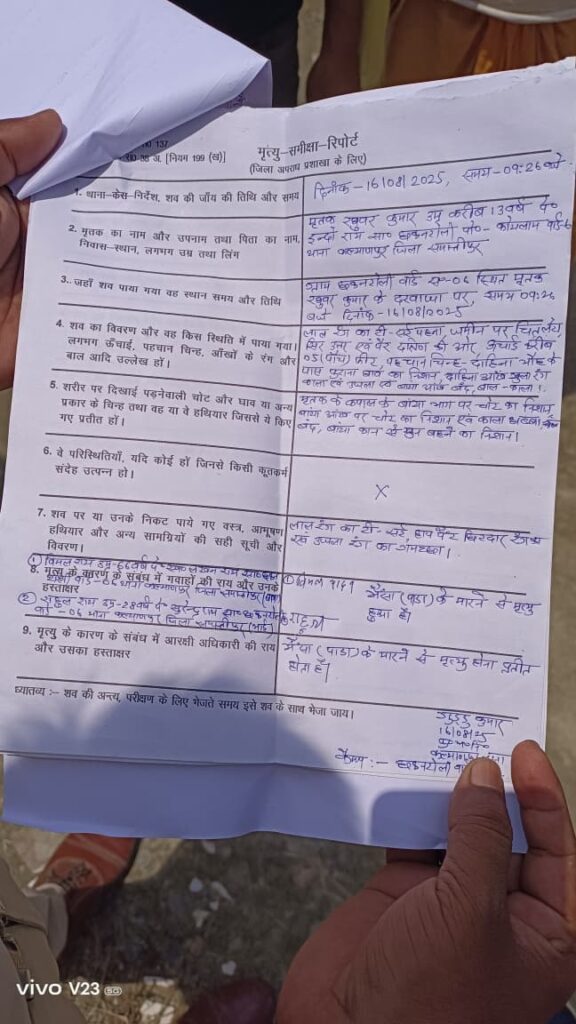 137
38 अ. [नियम 199 (ख)]
मृत्यु-समीक्षा-रिपोर्ट
(जिला अपराध प्रशाखा के लिए)
1. थाना-केस-निर्देश, शव की जाँय की तिथि और समय
दिनांक-16/08/2025, समय-09:26 बजे
2. मृतक का नाम और उपनाम तथा पिता का नाम,
निवास-स्थान, लगभग उम्र तथा लिंग
मृतक कुमार उम्र करीब 13 वर्ष पे०
राम सा० पो०- वार्ड-6
थाना कल्याणपुर जिला समस्तीपुर
3.. जहाँ शव पाया गया वह स्थान समय और तिथि
ग्राम वार्ड सं०-06 स्थित मृतक
कुमार के दरवाजा पर, समय 09:26
बजे दिनांक-16/08/2025
4. शव का विवरण और वह किस स्थिति में पाया गया।
लगभग ऊँचाई, पहचान चिन्ह, आँखों के रंग और
बाल आदि उल्लेख हों।
लाल रंग का टी-सर्ट पहना, जमीन पर चितलेटा
सिर उत्तर एवं पैर दक्षिण की ओर ऊंचाई करीब
05 (पाँच) फीट, पहचान चिन्ह- दाहिना के
पास पुराना का निशान, दाहिना आँख खुला रंग
काला एवं उजला एवं बांया आँख बंद, बाल-काला।
5. शरीर पर दिखाई पड़नेवाली चोट और घाव या अन्य
प्रकार के चिन्ह तथा वह या वे हथियार जिससे ये किए
गए प्रतीत हों।
मृतक के कपाल के बांया भाग पर चोट का निशान,
बांया आँख पर चोट का निशान एवं काला
बंद, बांया कान से खुन बहने का निशान।
6. वे परिस्थितियाँ, यदि कोई हों जिनसे किसी कूतकर्म
संदेह उत्पन्न हो।
X
7. शव पर या उनके निकट पाये गए वस्त्र, आमूषण
हथियार और अन्य सामग्रियों की सही सूची और
विवरण।
लाल रंग का टी-सर्ट, हाफ पैंट
एवं उजला रंग का गमछा।
① विमल राम उम्र-66 वर्ष पे०
वार्ड-06 थाना कल्याणपुर जिला समस्तीपुर
8. मृत्यु के कारण के संबंध में गवाहों की राय और उनके
हस्ताक्षर
② राहुल राम उम्र-28 वर्ष पे० सुरेन्द्र राम
वार्ड-06 थाना कल्याणपुर जिला समस्तीपुर
① विमल राम
राहुल
भैंसा (पाडा) के मारने से मृत्यु
हुआ है।
9. मृत्यु के कारण के संबंध में आरक्षी अधिकारी की राय
और उसका हस्ताक्षर
भैंसा (पाडा) के मारने से मृत्यु होना प्रतीत
होता है।
ध्यातव्य :- शव की अन्त्य, परीक्षण के लिए भेजते समय इसे शव के साथ भेजा जाय।
कुमार
16/08/25
कैम्प :-
vivo V23 5G